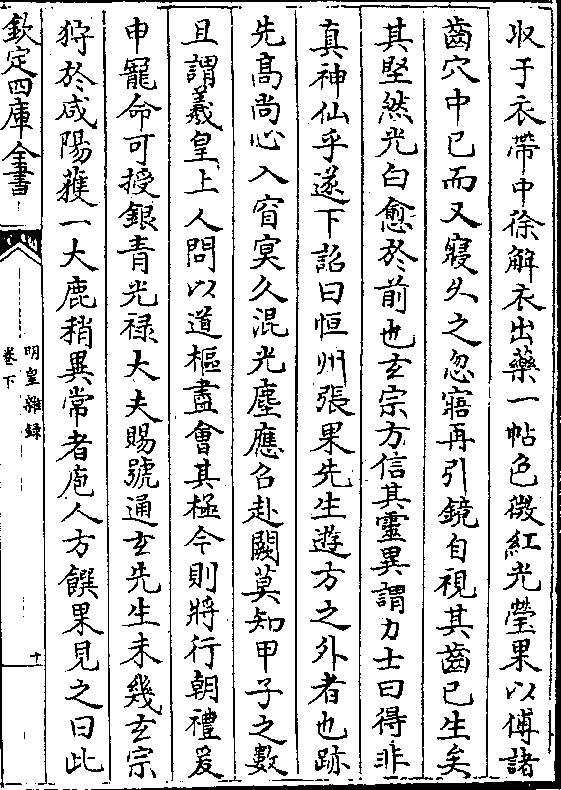 収于衣帶中徐解衣出藥一帖色微紅光瑩果以傅諸
齒穴中已而又寢久之忽寤再引鏡自視其齒已生矣
其堅然光白愈於前也玄宗方信其靈異謂力士曰得非
真神仙乎遂下詔曰恒州張果先生遊方之外者也跡
先高尚心入窅冥久混光塵應召赴闕莫知甲子之數
且謂羲皇上人問以道樞盡會其極今則將行朝禮爰
申寵命可授銀青光禄大夫賜號通玄先生未幾玄宗
狩於咸陽獲一大鹿稍異常者庖人方饌果見之曰此
欽定四庫全書
明皇雜録
卷下
十